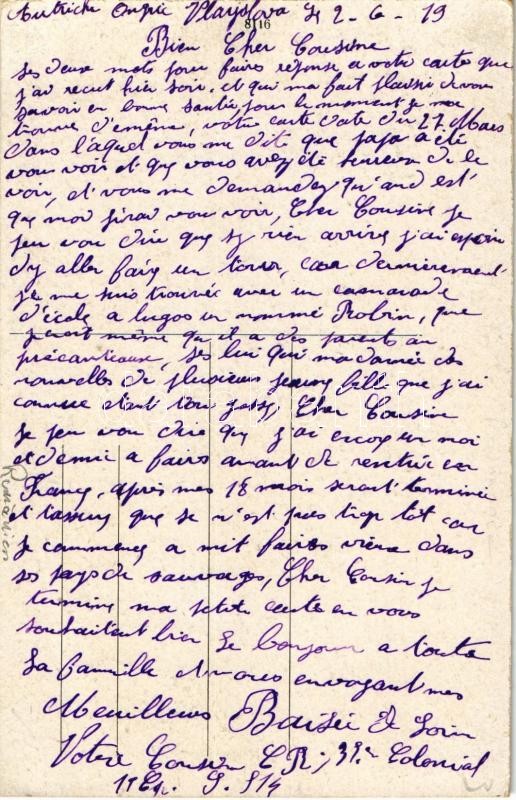 Autriche Ongrie Playslova le 2-6-19
8116
Bien Cher Cousine
ses deux mots pour faire réponse a votre carte que
j'ai recut hier soir, et qui ma fait plaisir de vous
savoir en bonne santée pour le moment je me
trouve de même, votre carte date du 27 Mars
dans laquel vous me dite que papa a été
vous voir et que vous avez été heureux de le
voir, et vous me demandez qu'and est'
que moi j'irai vous voir, Cher Cousine je
peu vou dire que sy rien arrive j'ai espoir
d'y aller faire un tour, car dernierement
je me suis trouvée avec un camarade
d'école a lugos un nommé Robin, que
parait même qu'il a des parent au
ses lui qui ma donnée des
nouvelles de plusieurs jeune fille que j'ai
connue étant tous Cher Cousin
je peu vou dire que j'ai encore un moi
et demie a faire avant de rentré en
France, après mes 18 mois seront terminée
et tassure que se n'est pas trop tot car
je commence a mit faire vieux dans
ses pays de sauvages, Cher Cousin je
termine ma petite carte en vous
souhaitent bien le bonjour a toute
la famille et vous envoyant mes
Meuilleurs Baisée de Loin
Votre Cousin C R; 39e Colonial
11e Cie S. P. 514
Rumänien